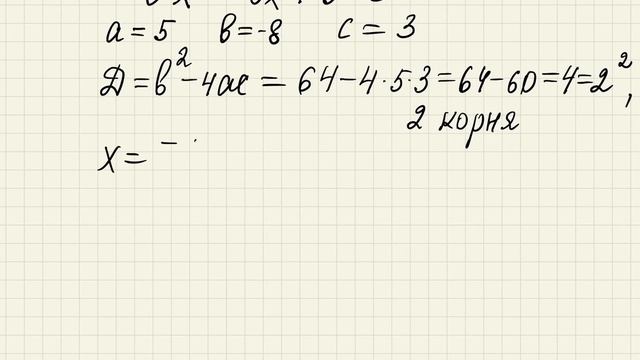 a = 5 b = -8 c = 3
D = b² - 4ac = 64 - 4·5·3 = 64 - 60 = 4 = 2²,
2 корня
x = -